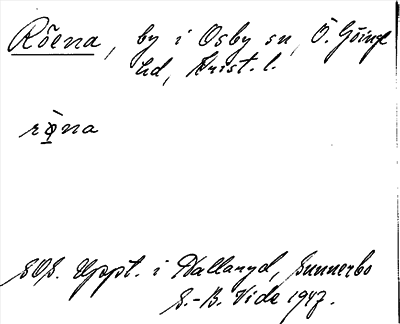 Röena, by i Osby sn, Ö. Göinge
hd, Krist. l.
röna
SOS. Uppt. i Hallaryd, Sunnerbo
S.-B. Vide 1947.